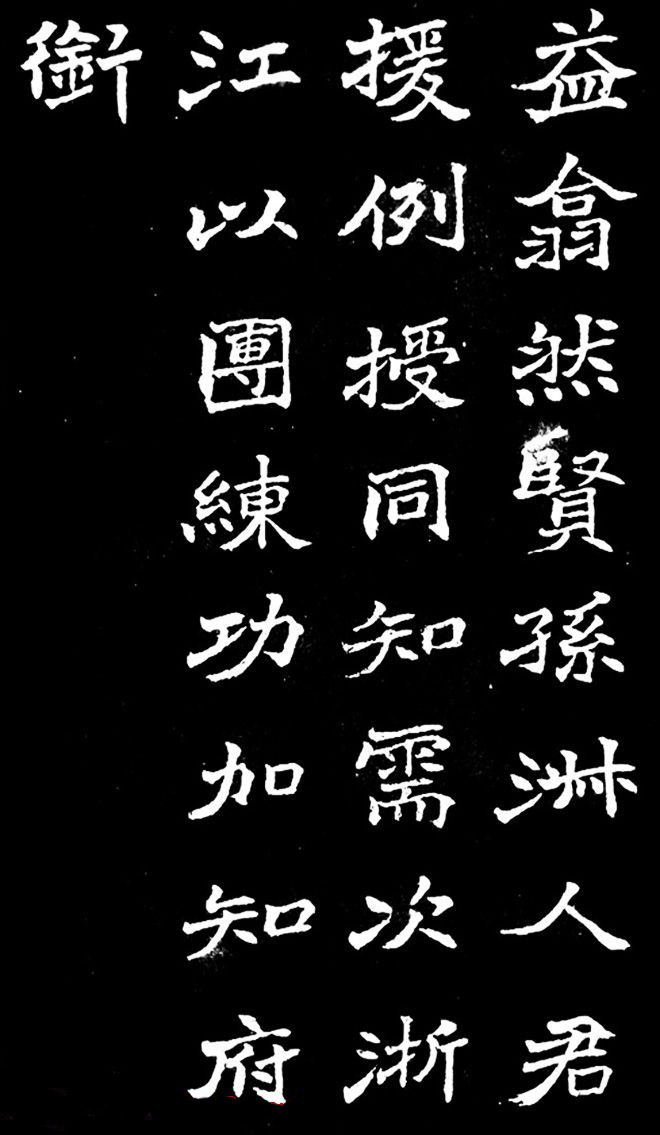 益翕然賢孫淋人君
援例授同知需次浙
江以團練功加知府
銜